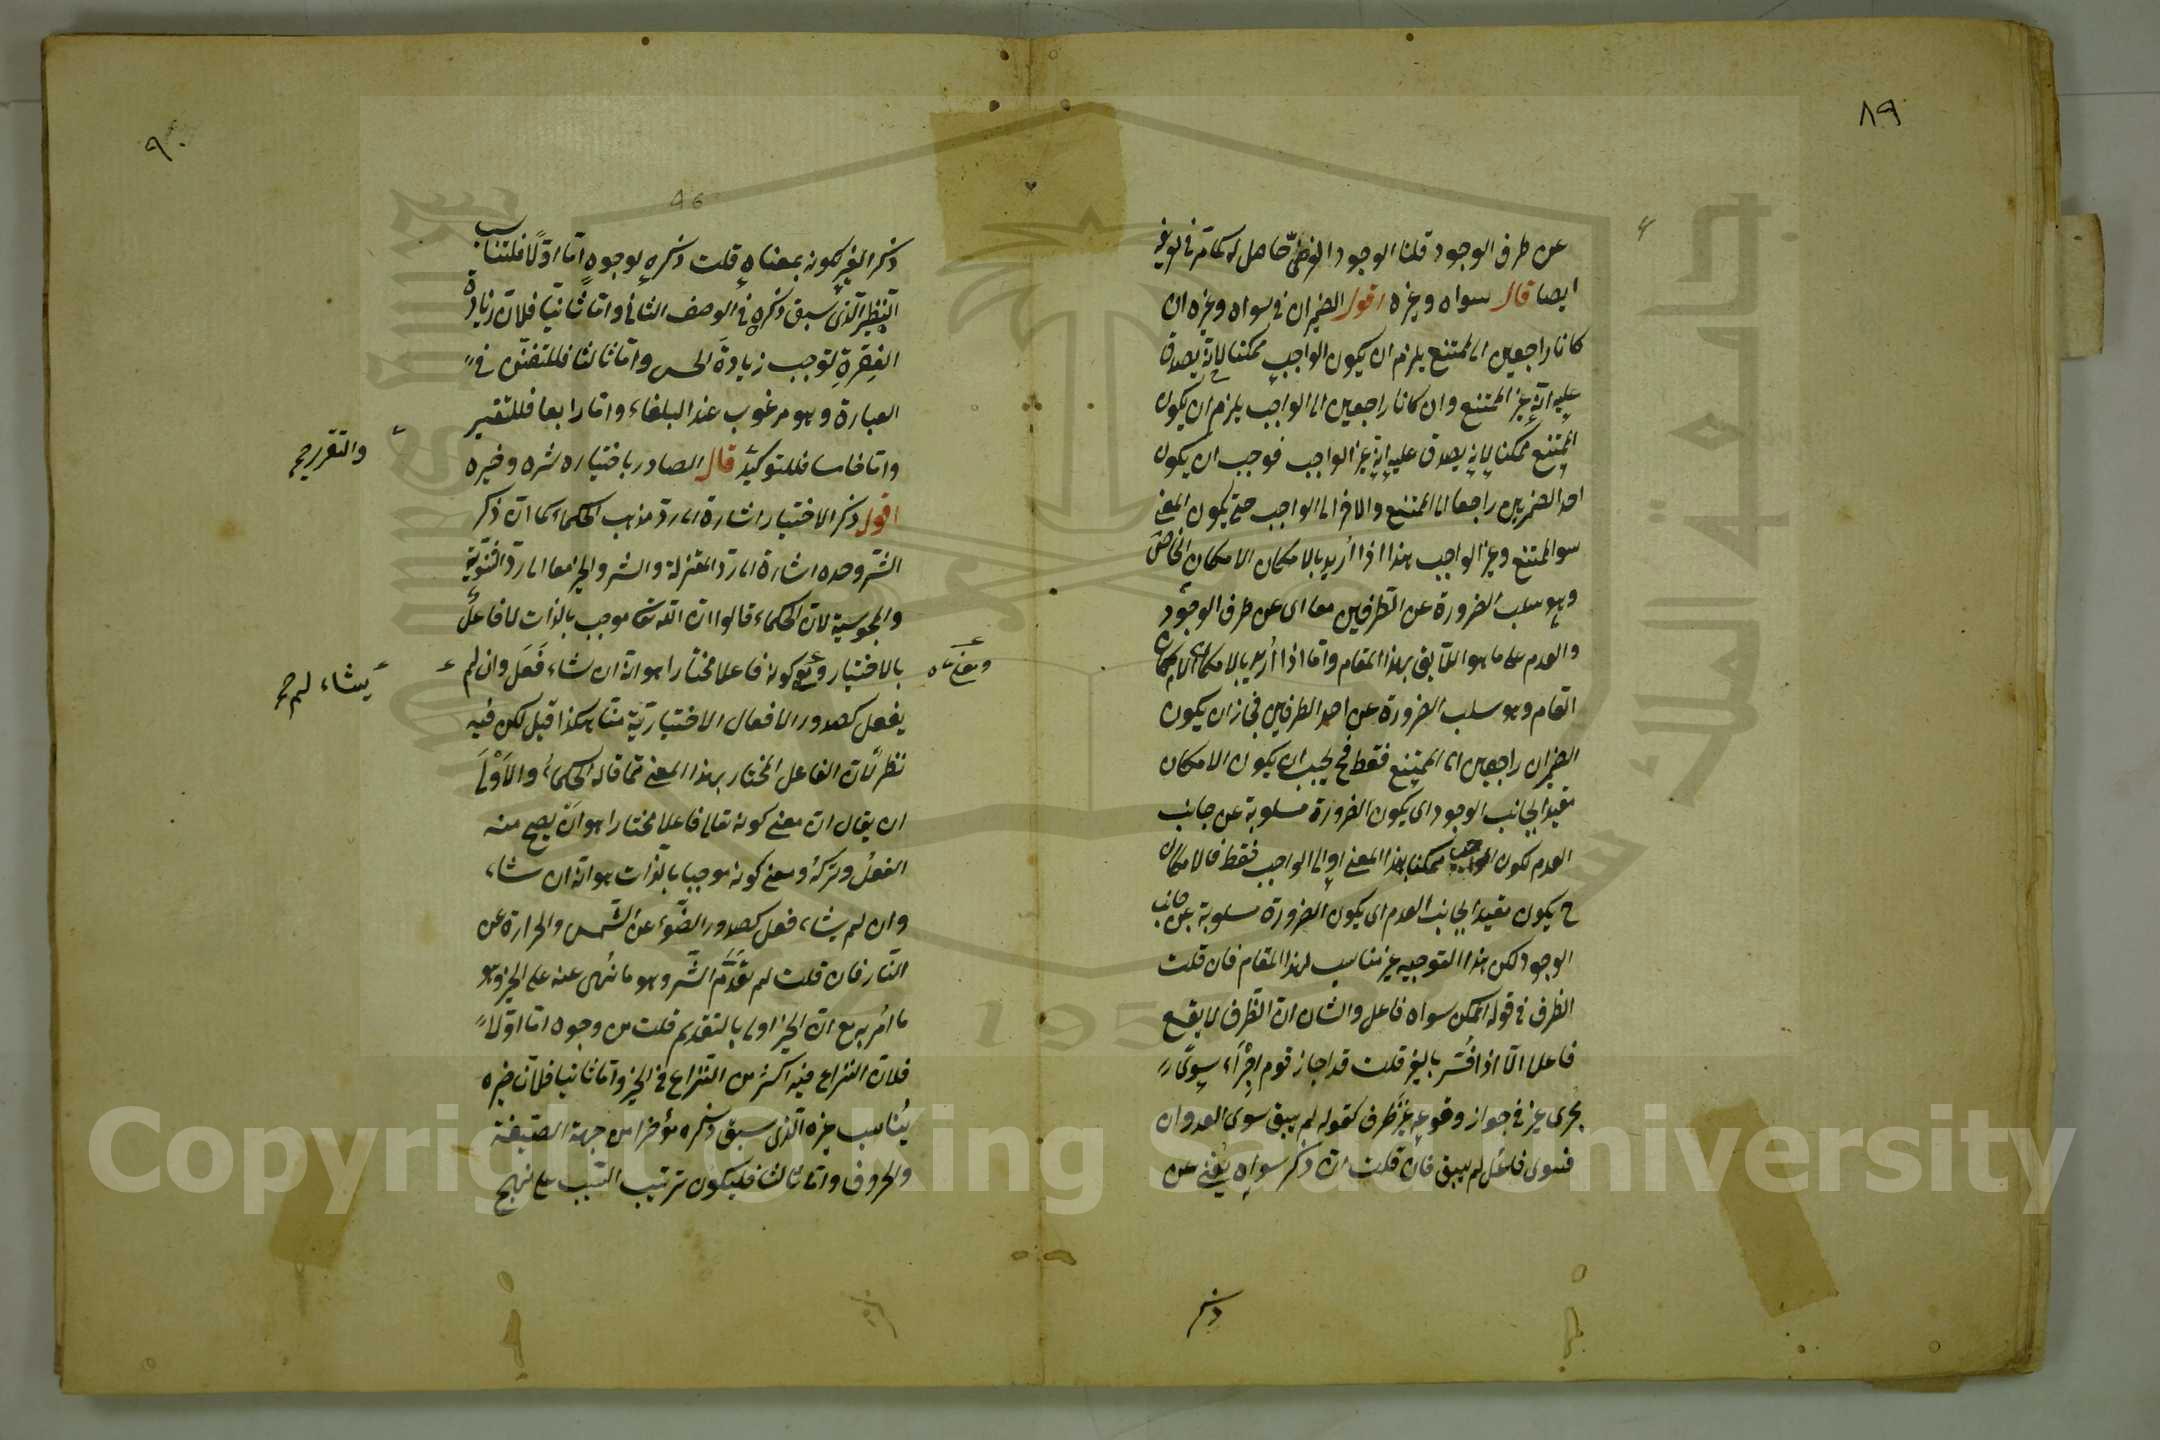 ٨٩
عن طرف الوجود قلنا الوجود حاصل له كما مر في توجيه
ايضا قال سواه وغيره اقول الضميران في سواه وغيره ان
كانا راجعين الى الممتنع يلزم ان يكون الواجب ممكنا لانه يصدق
عليه انه غير الممتنع وان كانا راجعين الى الواجب يلزم ان يكون
الممتنع ممكنا لانه يصدق عليه انه غير الواجب فوجب ان يكون
احد الضميرين راجعا الى الممتنع والاخر الى الواجب حتى يكون المعنى
سوا الممتنع وغير الواجب هذا اذا أريد بالامكان الامكان الخاص
وهو سلب الضرورة عن الطرفين معا اى عن طرف الوجود
والعدم على ما هو اللائق بهذا المقام واما اذا أريد بالامكان الامكان
العام وهو سلب الضرورة عن احد الطرفين فجاز ان يكون
الضميران راجعين الى الممتنع فقط فح يجب ان يكون الامكان
مقيدا لجانب الوجود اى يكون الضرورة مسلوبة عن جانب
العدم لكون الواجب ممكنا بهذا المعنى او الى الواجب فقط فالامكان
ح يكون مقيدا لجانب العدم اى يكون الضرورة مسلوبة عن جانب
الوجود لكن هذا التوجيه غير مناسب لهذا المقام فان قلت
الظرف في قوله الممكن سواه فاعل والشان ان الظرف لا يقع
فاعلا الا اذا فسر بالغير قلت قد اجاز قوم اجراء سوى
مجرى غير في جواز وقوعه غير ظرف كقوله لم يبق سوى العدوان
فسوى فاعل لم يبق فان قلت ان ذكر سواه يغنى عن
ذكر
٩٠
ذكر الغير لكونه بمعناه قلت ذكره لوجوه اما اولا فلتناسب
النظير الذى سبق ذكره في الوصف الثانى واما ثانيا فلان زيادة
الفقرة توجب زيادة الحسن واما ثالثا فللتفنن في
العبارة وهو مرغوب عند البلغاء واما رابعا فللتفسير
والتقرير صح
واما خامسا فللتوكيد قال الصادر باختياره شره وخيره
اقول ذكر الاختيار اشارة الى رد مذهب الحكماء كما ان ذكر
الشر وحده اشارة الى رد المعتزلة والشر والخير معا الى رد الثنوية
والمجوسية لان الحكماء قالوا ان الله تعالى موجب بالذات لا فاعل
بالاختيار ومعنى كونه فاعلا مختارا هو انه ان شاء فعل وان لم
ومعنى
يشاء لم صح
يفعل كصدور الافعال الاختيارية منا هكذا قيل لكن فيه
نظر لان الفاعل المختار بهذا المعنى مما قاله الحكماء والاولى
ان يقال ان معنى كونه تعالى فاعلا مختارا هو ان يصح منه
الفعل وتركه ومعنى كونه موجبا بالذات هو انه ان شاء
وان لم يشاء فعل كصدور الضوء عن الشمس والحرارة عن
النار فان قلت لم تقدم الشر وهو ما نهى عنه على الخير وهو
ما امر به مع ان الخير اولى بالتقديم قلت من وجوه اما اولا
فلان النزاع فيه اكثر من النزاع في الخير واما ثانيا فلان خيره
يناسب غيره الذى سبق ذكره مؤخرا من جهة الصيغة
والحروف واما ثالثا فليكون ترتيب السبب على نهج